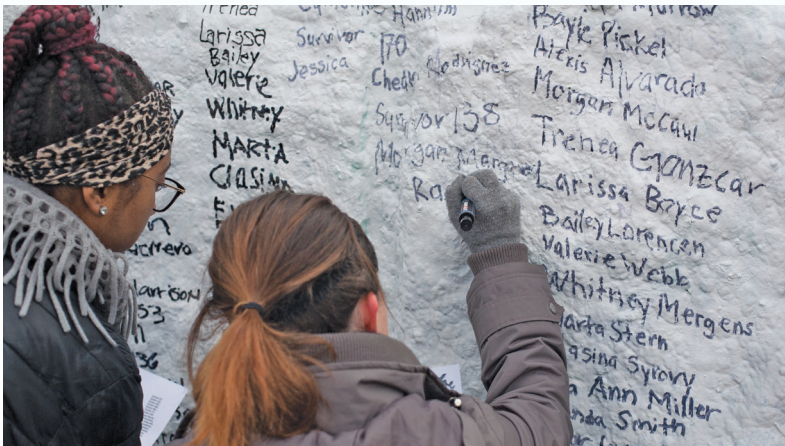 Trenea
Larissa
Bailey
Valerie
Whitney
MARTA
Hannum
Survivor 170
Jessica Cheri Rodriguez
Survivor 138
Morgan
Ra
Bayle Pickel
Alexis Alvarado
Morgan McCaul
Trenea Gonzcar
Larissa Boyce
Bailey Lorencen
Valerie Webb
Whitney Mergens
Marta Stern
asina Syrovy
Ann Miller
nda Smith
arrison
53
36